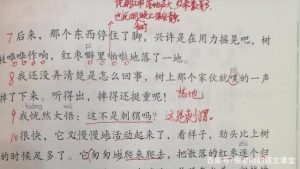 7后来,那个东西停住了脚,兴许是在用力摇晃吧,树
枝哗哗作响,红枣噼里啪啦地落了一地。
8我还没弄清楚是怎么回事,树上那个家伙就噗的一声
掉了下来。听得出,摔得还挺重呢!
huǎng wù
9我恍然大悟:这不是刺猬吗?这是刺猬。
10很快,它又慢慢地活动起来了,看样子,劲头比上树
的时候足多了。它匆匆地爬来爬去,把散落的红枣逐个归
百家号/张老师的语文课堂